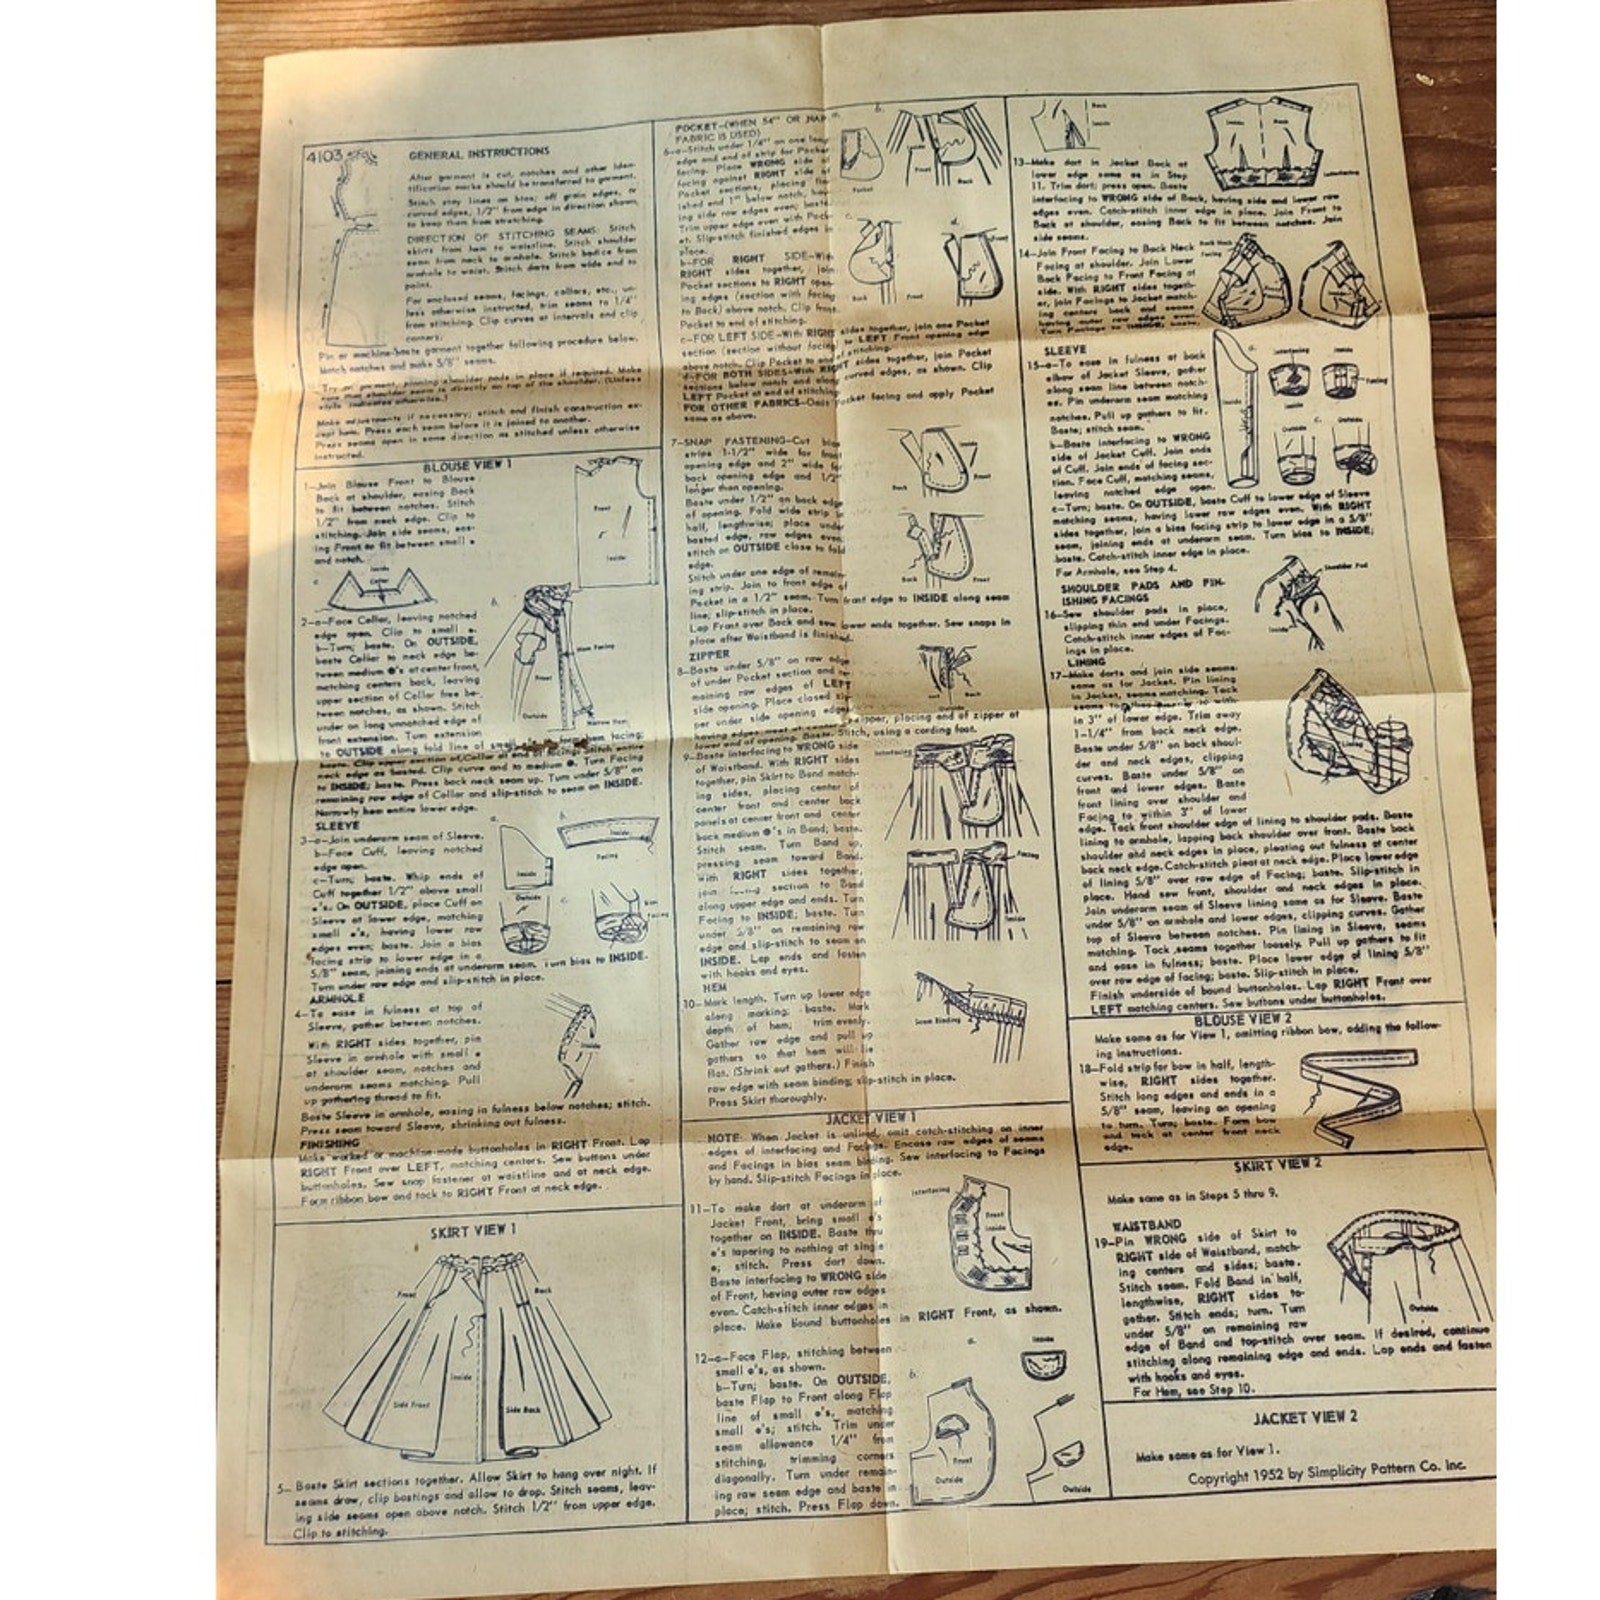 4103
GENERAL INSTRUCTIONS
After garment is cut, notches and other iden-
tification marks should be transferred to garment.
Stitch stay lines on bias; off grain edges, or
curved edges, 1/2" from edge in direction shown,
to keep them from stretching.
DIRECTION OF STITCHING SEAMS: Stitch
skirts from hem to waistline. Stitch shoulder
seam from neck to armhole. Stitch bodice from
armhole to waist. Stitch darts from wide end to
point.
For enclosed seams, facings, collars, etc., un-
less otherwise instructed, trim seams to 1/4"
from stitching. Clip curves at intervals and clip
corners.
Pin or machine-baste garment together following procedure below.
Match notches and make 5/8" seams.
Try on garment, pinning shoulder pads in place if required. Make
sure that shoulder seam is directly on top of the shoulder. (Unless
style indicates otherwise.)
Make adjustments if necessary; stitch and finish construction ex-
cept hem. Press each seam before it is joined to another.
Press seams open in same direction as stitched unless otherwise
instructed.
BLOUSE VIEW 1
1—Join Blouse Front to Blouse
Back at shoulder, easing Back
to fit between notches. Stitch
1/2" from neck edge. Clip to
stitching. Join side seams, eas-
ing Front to fit between small •
and notch.
Front
Inside
a
Inside
Collar
b.
2—a—Face Collar, leaving notched
edge open. Clip to small •.
b—Turn; baste. On OUTSIDE,
baste Collar to neck edge be-
tween medium ●'s at center front,
matching centers back, leaving
upper section of Collar free be-
tween notches, as shown. Stitch
under on long unnotched edge of
front extension. Turn extension
to OUTSIDE along fold line of hem facing;
baste. Clip upper section of Collar at end of facing; Stitch entire
neck edge as basted. Clip curve and to medium ●. Turn Facing
to INSIDE; baste. Press back neck seam up. Turn under 5/8" on
remaining raw edge of Collar and slip-stitch to seam on INSIDE.
Narrowly hem entire lower edge.
Hem Facing
Front
Outside
Narrow Hem
SLEEVE
3—a—Join underarm seam of Sleeve.
b—Face Cuff, leaving notched
edge open.
c—Turn; baste. Whip ends of
Cuff together 1/2" above small
•'s. On OUTSIDE, place Cuff on
Sleeve at lower edge, matching
small •'s, having lower raw
edges even; baste. Join a bias
facing strip to lower edge in a
5/8" seam, joining ends at underarm seam. Turn bias to INSIDE.
Turn under raw edge and slip-stitch in place.
a.
b.
Inside
Facing
Inside
Outside
c
ARMHOLE
4—To ease in fulness at top of
Sleeve, gather between notches.
With RIGHT sides together, pin
Sleeve in armhole with small •
at shoulder seam, notches and
underarm seams matching. Pull
up gathering thread to fit.
Baste Sleeve in armhole, easing in fulness below notches; stitch.
Press seam toward Sleeve, shrinking out fulness.
Inside
FINISHING
Make worked or machine-made buttonholes in RIGHT Front. Lap
RIGHT Front over LEFT, matching centers. Sew buttons under
buttonholes. Sew snap fastener at waistline and at neck edge.
Form ribbon bow and tack to RIGHT Front at neck edge.
SKIRT VIEW 1
Front
Back
Inside
Side Front
Side Back
5—Baste Skirt sections together. Allow Skirt to hang over night. If
seams draw, clip bastings and allow to drop. Stitch seams, leav-
ing side seams open above notch. Stitch 1/2" from upper edge.
Clip to stitching.
POCKET—(WHEN 54" OR NAP
FABRIC IS USED)
6—a—Stitch under 1/4" on one long
edge and end of strip for Pocket
facing. Place WRONG side of
facing against RIGHT side of
Pocket sections, placing fin-
ished end 1" below notch, hav-
ing side raw edges even; baste.
Trim upper edge even with Pock-
et. Slip-stitch finished edges in
place.
b—FOR RIGHT SIDE—With
RIGHT sides together, join
Pocket sections to RIGHT open-
ing edges (section with facing
to Back) above notch. Clip front
Pocket to end of stitching.
c—FOR LEFT SIDE—With RIGHT sides together, join one Pocket
section (section without facing) to LEFT Front opening edge
above notch. Clip Pocket to end of stitching.
d—FOR BOTH SIDES—With RIGHT sides together, join Pocket
sections below notch and along curved edges, as shown. Clip
LEFT Pocket at end of stitching.
FOR OTHER FABRICS—Omit Pocket facing and apply Pocket
same as above.
a.
b.
Pocket
Inside
Front
Back
c.
d.
Front
Back
Front
7—SNAP FASTENING—Cut bias
strips 1-1/2" wide for front
opening edge and 2" wide for
back opening edge and 1/2"
longer than opening.
Baste under 1/2" on back edge
of opening. Fold wide strip in
half, lengthwise; place under
basted edge, raw edges even;
stitch on OUTSIDE close to fold
edge.
Stitch under one edge of remain-
ing strip. Join to front edge of
Pocket in a 1/2" seam. Turn front edge to INSIDE along seam
line; slip-stitch in place.
Lap Front over Back and sew lower ends together. Sew snaps in
place after Waistband is finished.
Inside
Back
Front
Back
Front
ZIPPER
8—Baste under 5/8" on raw edge
of under Pocket section and re-
maining raw edges of LEFT
side opening. Place closed zip-
per under side opening edges
having edges meet at center of zipper, placing end of zipper at
lower end of opening. Baste. Stitch, using a cording foot.
Back
Outside
9—Baste interfacing to WRONG side
of Waistband. With RIGHT sides
together, pin Skirt to Band match-
ing sides, placing center of
center front and center back
panels at center front and center
back medium ●'s in Band; baste.
Stitch seam. Turn Band up,
pressing seam toward Band.
With RIGHT sides together,
join facing section to Band
along upper edge and ends. Turn
Facing to INSIDE; baste. Turn
under 5/8" on remaining raw
edge and slip-stitch to seam on
INSIDE. Lap ends and fasten
with hooks and eyes.
Interfacing
Facing
Inside
HEM
10—Mark length. Turn up lower edge
along marking; baste. Mark
depth of hem; trim evenly.
Gather raw edge and pull up
gathers so that hem will lie
flat. (Shrink out gathers.) Finish
raw edge with seam binding; slip-stitch in place.
Press Skirt thoroughly.
Seam Binding
JACKET VIEW 1
NOTE: When Jacket is unlined, omit catch-stitching on inner
edges of interfacing and Facings. Encase raw edges of seams
and Facings in bias seam binding. Sew interfacing to Facings
by hand. Slip-stitch Facings in place.
11—To make dart at underarm of
Jacket Front, bring small •'s
together on INSIDE. Baste thru
•'s tapering to nothing at single
•; stitch. Press dart down.
Baste interfacing to WRONG side
of Front, having outer raw edges
even. Catch-stitch inner edges in
place. Make bound buttonholes in RIGHT Front, as shown.
Interfacing
Front
Inside
12—a—Face Flap, stitching between
small •'s, as shown.
b—Turn; baste. On OUTSIDE,
baste Flap to Front along Flap
line of small •'s, matching
small •'s; stitch. Trim under
seam allowance 1/4" from
stitching, trimming corners
diagonally. Turn under remain-
ing raw seam edge and baste in
place; stitch. Press Flap down.
a.
Inside
b.
Front
Outside
Outside
Back
Inside
Inside
Back
Interfacing
13—Make dart in Jacket Back at
lower edge same as in Step
11. Trim dart; press open. Baste
interfacing to WRONG side of Back, having side and lower raw
edges even. Catch-stitch inner edge in place. Join Front to
Back at shoulder, easing Back to fit between notches. Join
side seams.
14—Join Front Facing to Back Neck
Facing at shoulder. Join Lower
Back Facing to Front Facing at
side. With RIGHT sides togeth-
er, join Facings to Jacket match-
ing centers back and seams
having outer raw edges even.
Turn Facings to INSIDE; baste.
Back Neck
Facing
SLEEVE
15—a—To ease in fulness at back
elbow of Jacket Sleeve, gather
along seam line between notch-
es. Pin underarm seam matching
notches. Pull up gathers to fit.
Baste; stitch seam.
b—Baste interfacing to WRONG
side of Jacket Cuff. Join ends
of Cuff. Join ends of facing sec-
tion. Face Cuff, matching seams,
leaving notched edge open.
c—Turn; baste. On OUTSIDE, baste Cuff to lower edge of Sleeve
matching seams, having lower raw edges even. With RIGHT
sides together, join a bias facing strip to lower edge in a 5/8"
seam, joining ends at underarm seam. Turn bias to INSIDE;
baste. Catch-stitch inner edge in place.
For Armhole, see Step 4.
a.
Inside
Interfacing
Inside
Facing
Inside
c.
Outside
Outside
SHOULDER PADS AND FIN-
ISHING FACINGS
16—Sew shoulder pads in place,
slipping thin end under Facings.
Catch-stitch inner edges of Fac-
ings in place.
Shoulder Pad
Inside
LINING
17—Make darts and join side seams
same as for Jacket. Pin lining
in Jacket, seams matching. Tack
seams together loosely to within
in 3" of lower edge. Trim away
1-1/4" from back neck edge.
Baste under 5/8" on back shoul-
der and neck edges, clipping
curves. Baste under 5/8" on
front and lower edges. Baste
front lining over shoulder and
Facing to within 3" of lower
edge. Tack front shoulder edge of lining to shoulder pads. Baste
lining to armhole, lapping back shoulder over front. Baste back
shoulder and neck edges in place, pleating out fulness at center
back neck edge. Catch-stitch pleat at neck edge. Place lower edge
of lining 5/8" over raw edge of Facing; baste. Slip-stitch in
place. Hand sew front, shoulder and neck edges in place.
Join underarm seam of Sleeve lining same as for Sleeve. Baste
under 5/8" on armhole and lower edges, clipping curves. Gather
top of Sleeve between notches. Pin lining in Sleeve, seams
matching. Tack seams together loosely. Pull up gathers to fit
and ease in fulness; baste. Place lower edge of lining 5/8"
over raw edge of facing; baste. Slip-stitch in place.
Finish underside of bound buttonholes. Lap RIGHT Front over
LEFT matching centers. Sew buttons under buttonholes.
Lining
BLOUSE VIEW 2
Make same as for View 1, omitting ribbon bow, adding the follow-
ing instructions.
18—Fold strip for bow in half, length-
wise, RIGHT sides together.
Stitch long edges and ends in a
5/8" seam, leaving an opening
to turn. Turn; baste. Form bow
and tack at center front neck
edge.
SKIRT VIEW 2
Make same as in Steps 5 thru 9.
WAISTBAND
19—Pin WRONG side of Skirt to
RIGHT side of Waistband, match-
ing centers and sides; baste.
Stitch seam. Fold Band in half,
lengthwise, RIGHT sides to-
gether. Stitch ends; turn. Turn
under 5/8" on remaining raw
edge of Band and top-stitch over seam. If desired, continue
stitching along remaining edge and ends. Lap ends and fasten
with hooks and eyes.
For Hem, see Step 10.
Outside
JACKET VIEW 2
Make same as for View 1.
Copyright 1952 by Simplicity Pattern Co. Inc.